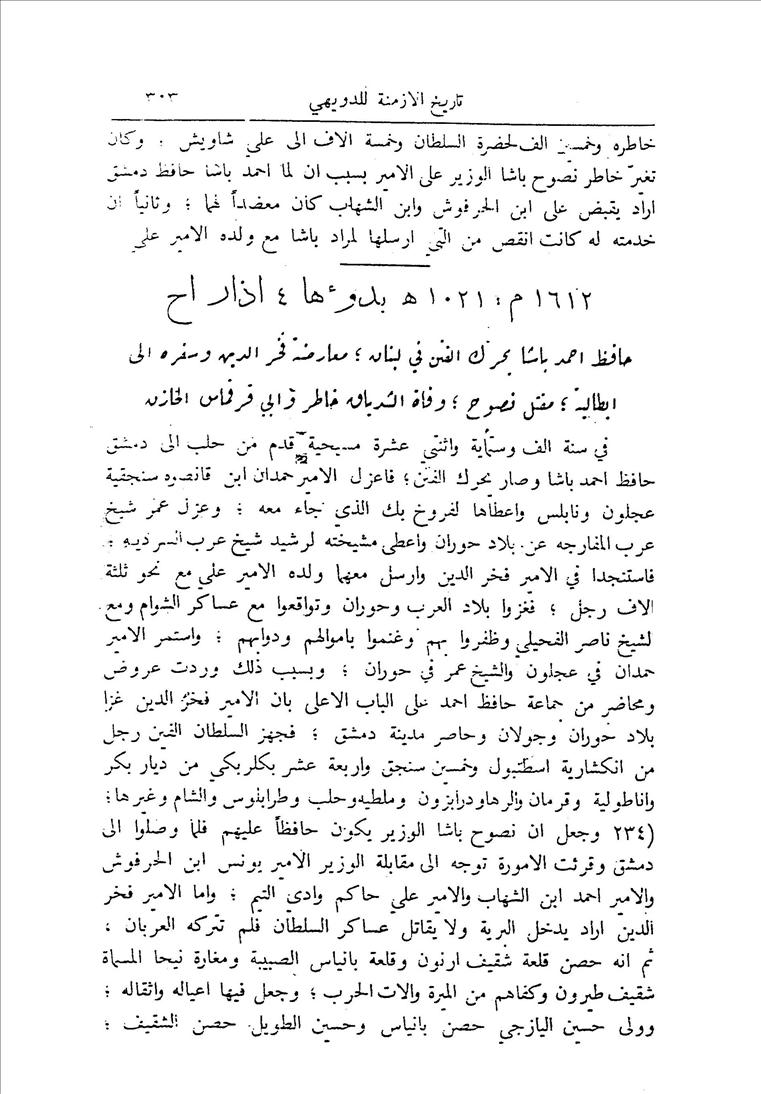 تاريخ الازمنة للدويهي ٣٠٣
خاطره وخمسين الف لحضرة السلطان وخمسة الاف الى علي شاويش ؛ وكان
تغيّر خاطر نصوح باشا الوزير على الامير بسبب ان لما احمد باشا حافظ دمشق
اراد يقبض على ابن الحرفوش وابن الشهاب كان معضداً لهما ؛ وثانياً ان
خدمته له كانت انقص من التي ارسلها لمراد باشا مع ولده الامير علي
١٦١٢ م : ١٠٢١ ه بدوءها ٤ اذار اح
حافظ احمد باشا يحرك الفتن في لبنان ؛ معارضة فخر الدين وسفره الى
ايطالية ؛ مقتل نصوح ؛ وفاة الشدياق خاطر وابي قرقماس الخازن
في سنة الف وستماية واثنتي عشرة مسيحية قدم من حلب الى دمشق
حافظ احمد باشا وصار يحرك الفتن ؛ فاعزل الامير حمدان ابن قانصوه سنجقية
عجلون ونابلس واعطاها لفروخ بك الذي جاء معه ؛ وعزل عمر شيخ
عرب المفارجه عن بلاد حوران واعطى مشيخته لرشيد شيخ عرب السرديه ؛
فاستنجدا في الامير فخر الدين وارسل معهما ولده الامير علي مع نحو ثلثة
الاف رجل ؛ فغزوا بلاد العرب وحوران وتواقعوا مع عساكر الشوام ومع
لشيخ ناصر الفحيلي وظفروا بهم وغنموا باموالهم ودوابهم ؛ واستمر الامير
حمدان في عجلون والشيخ عمر في حوران ؛ وبسبب ذلك وردت عروض
ومحاضر من جماعة حافظ احمد على الباب الاعلى بان الامير فخر الدين غزا
بلاد حوران وجولان وحاصر مدينة دمشق ؛ فجهز السلطان الفين رجل
من انكشارية اسطنبول وخمسين سنجق واربعة عشر بكلربكي من ديار بكر
واناطولية وقرمان والرها ودرابزون وملطيه وحلب وطرابلوس والشام وغيرها ؛
(٢٣٤ وجعل ان نصوح باشا الوزير يكون حافظاً عليهم فلما وصلوا الى
دمشق وقرئت الامورة توجه الى مقابلة الوزير الامير يونس ابن الحرفوش
والامير احمد ابن الشهاب والامير علي حاكم وادي التيم ؛ واما الامير فخر
الدين اراد يدخل البرية ولا يقاتل عساكر السلطان فلم تتركه العربان ،
ثم انه حصن قلعة شقيف ارنون وقلعة بانياس الصبيبة ومغارة نيحا المسماة
شقيف طيرون وكفاهم من الميرة والات الحرب ؛ وجعل فيها اعياله واثقاله ؛
وولى حسين اليازجي حصن بانياس وحسين الطويل حصن الشقيف ؛